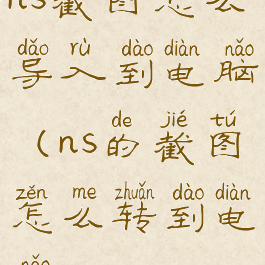 ns截图怎么
dǎo rù dào diàn nǎo
导入到电脑
de jié tú
(ns的截图
zěn me zhuǎn dào diàn
怎么转到电
nǎo